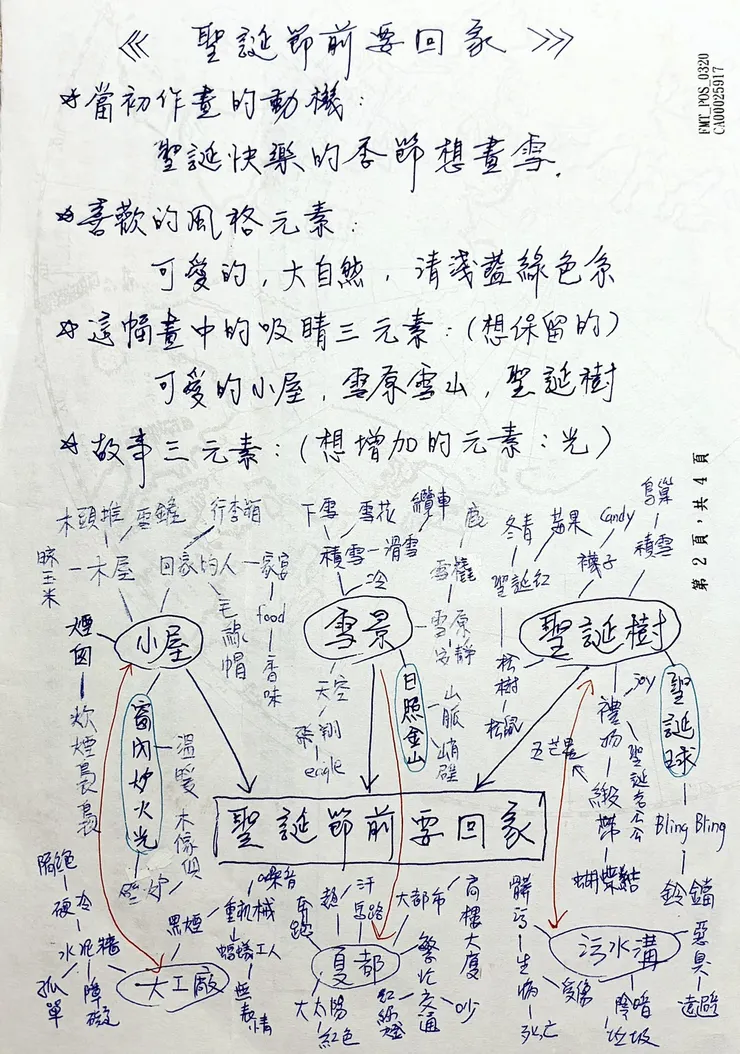 《 聖誕節前要回家 》
FMT_POS_0320
CA00025917
☆當初作畫的動機：
聖誕快樂的季節想畫雪.
☆喜歡的風格元素：
可愛的，大自然，清淺藍綠色系
☆這幅畫中的吸睛三元素：(想保留的)
可愛的小屋，雪原雪山，聖誕樹
☆故事三元素：(想增加的元素：光)
第 2 頁，共 4 頁
小屋
木頭堆
木屋
行李箱
回家的人
家宴
food
香味
毛線帽
煙囪
炊煙裊裊
窗內炉火光
溫暖
木傢俱
壁炉
雪景
下雪
雪花
纜車
積雪
滑雪
冷
鹿
雪橇
雪原
安靜
天空
飛翔
eagle
日照金山
山脈
峭壁
聖誕樹
冬青
莓果
Candy
鳥巢
聖誕紅
襪子
積雪
松樹
松鼠
禮物
Joy
聖誕老公公
緞帶
蝴蝶結
聖誕球
Bling Bling
鈴鐺
五芒星
聖誕節前要回家
大工廠
隔絕
硬
冷
水泥牆
孤單
障礙
黑煙
重機械
噪音
螞蟻工人
無表情
夏都
汗
馬路
大都市
高樓大廈
繁忙交通
吵
紅綠燈
大太陽
紅色
污水溝
髒污
生病
死亡
憂傷
陰暗
垃圾
惡臭
遠避